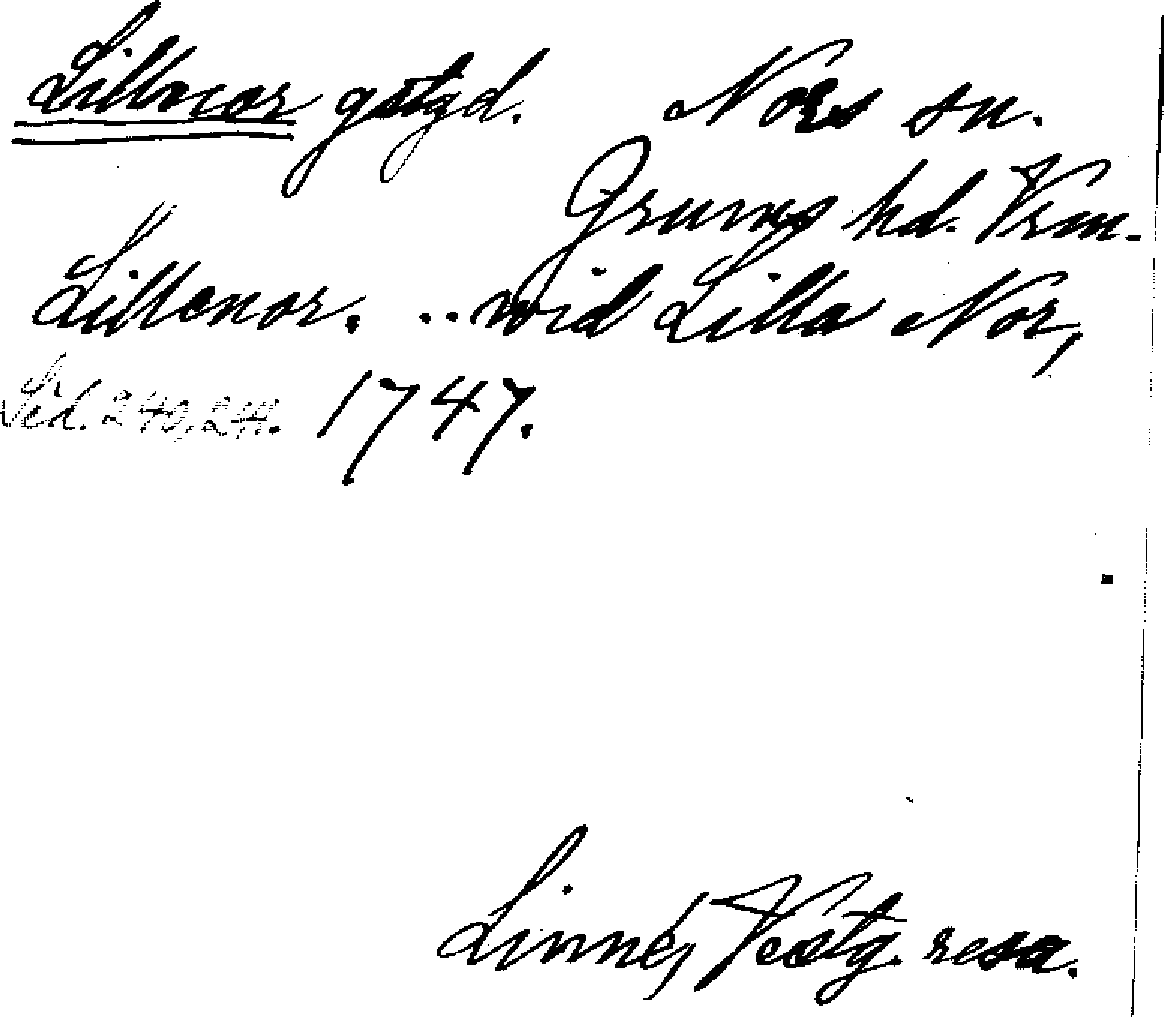 Lillenor gåtgd. Nors sn.
Grums hd. Vrm.
Lillenor. .. wid Lilla Nor,
Sid. 240, 241. 1747.
Linné, Vestg. resa.